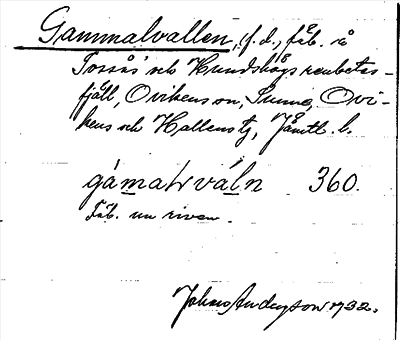 Gammalvallen, (f.d.) fäb. å
Torsås och Hundshögs renbetes-
fjäll, Ovikens sn, Sunne, Ovi-
kens och Hallens tg, Jämtl. l.
gámaɫváln 360.
Fäb. nu riven.
Johans Anderson 1932.